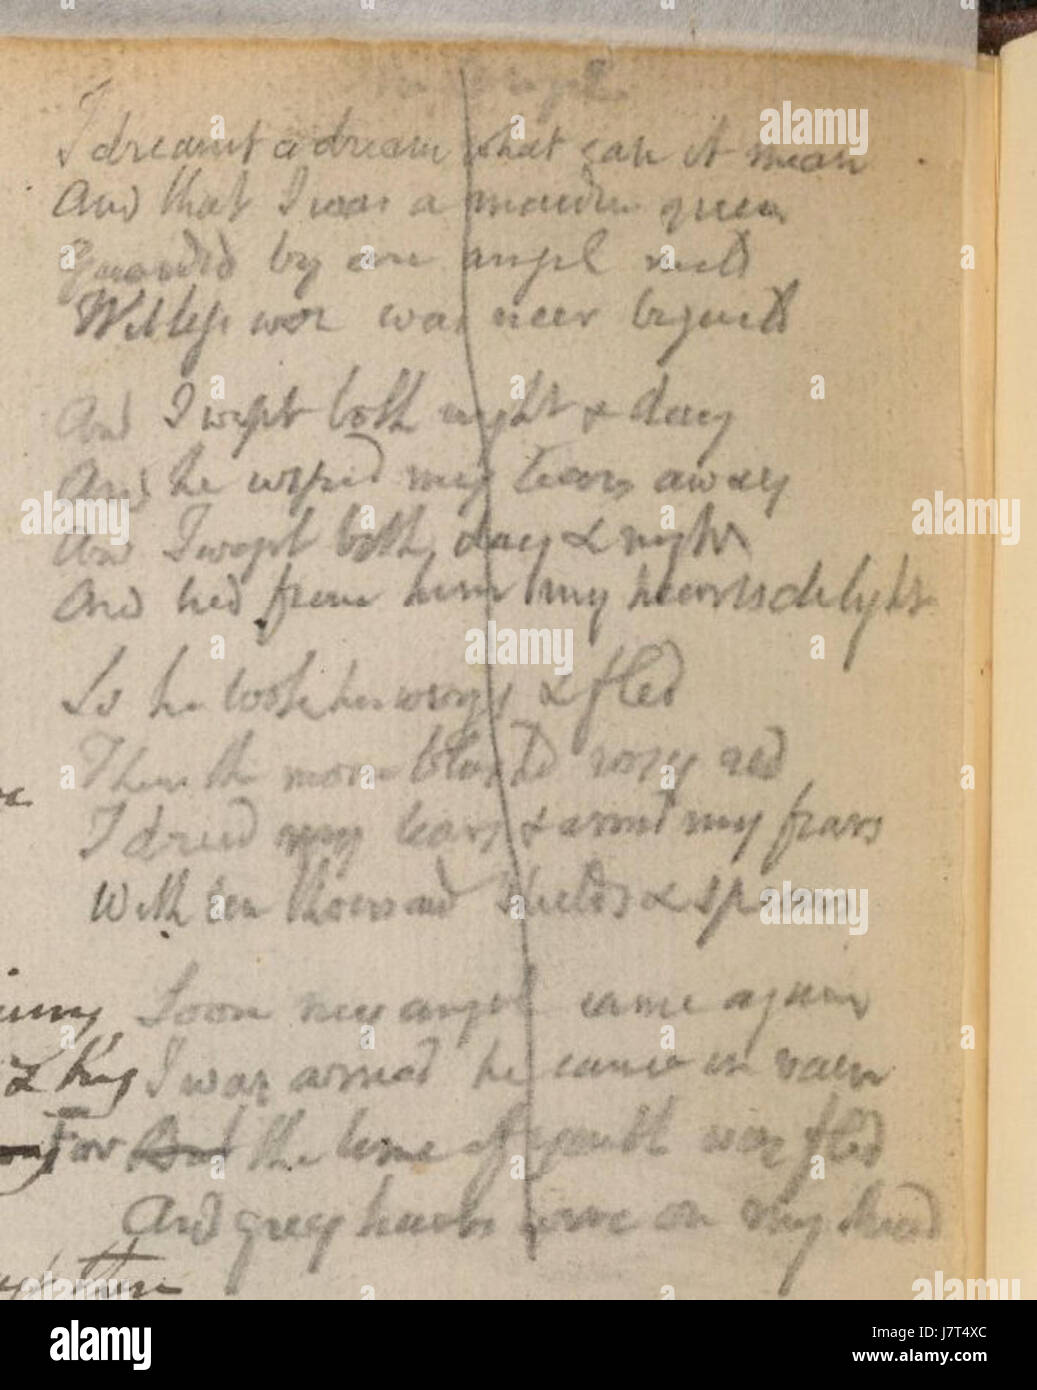 The Angel
I dreamt a dream what can it mean
And that I was a maiden queen
Guarded by an angel mild
Witless woe was neer beguild
And I wept both night & day
And he wiped my tears away
And I wept both day & night
And hid from him my hearts delight
So he took his wings & fled
Then the morn blushd rosy red
I dried my tears & armd my fears
With ten thousand shields & spears
Soon my angel came again
& king I was armed he came in vain
For But the time of youth was fled
And grey hairs were on my head
then
alamy
Image ID: J7T4XC
www.alamy.com